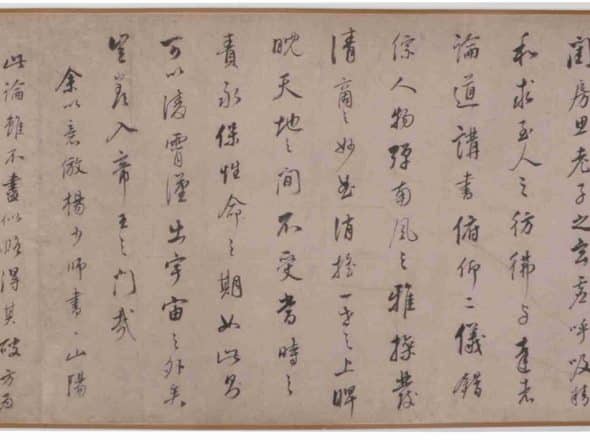 閨房思老子之玄虛呼吸精
和求至人之彷彿與達者
論道講書俯仰二儀錯
綜人物彈南風之雅操發
清商之妙曲逍遙一世之上睥
睨天地之間不受當時之
責永保性命之期如此則
可以陵霄漢出宇宙之外矣
豈羨入帝王之門哉
余以意倣楊少師書山陽
此論雖不盡似略得其破方為